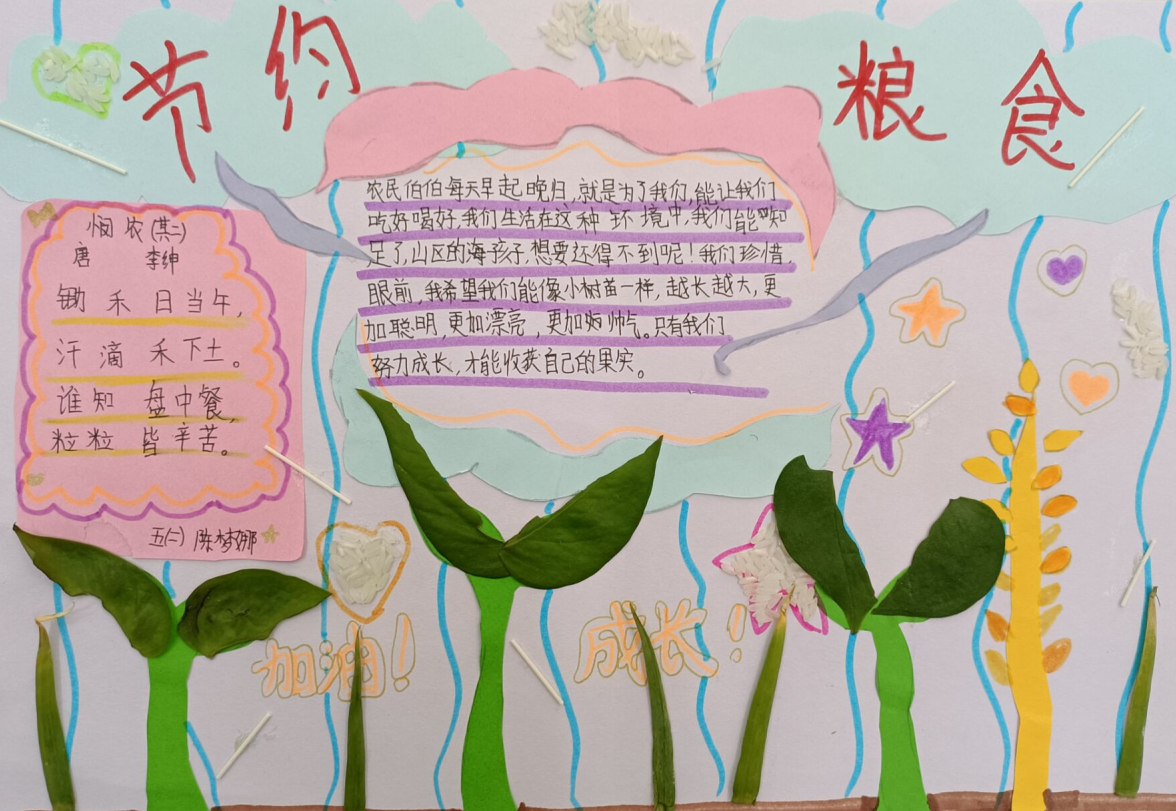 节约粮食
悯农(其二)
唐 李绅
锄禾日当午,
汗滴禾下土。
谁知盘中餐,
粒粒皆辛苦。
五(二) 陈梦娜
农民伯伯每天早起晚归,就是为了我们,能让我们
吃好喝好,我们生活在这种环境中,我们能知
足了,山区的海孩子,想要还得不到呢!我们珍惜,
眼前,我希望我们能像小树苗一样,越长越大,更
加聪明,更加漂亮,更加帅气。只有我们
努力成长,才能收获自己的果实。
加油!
成长!